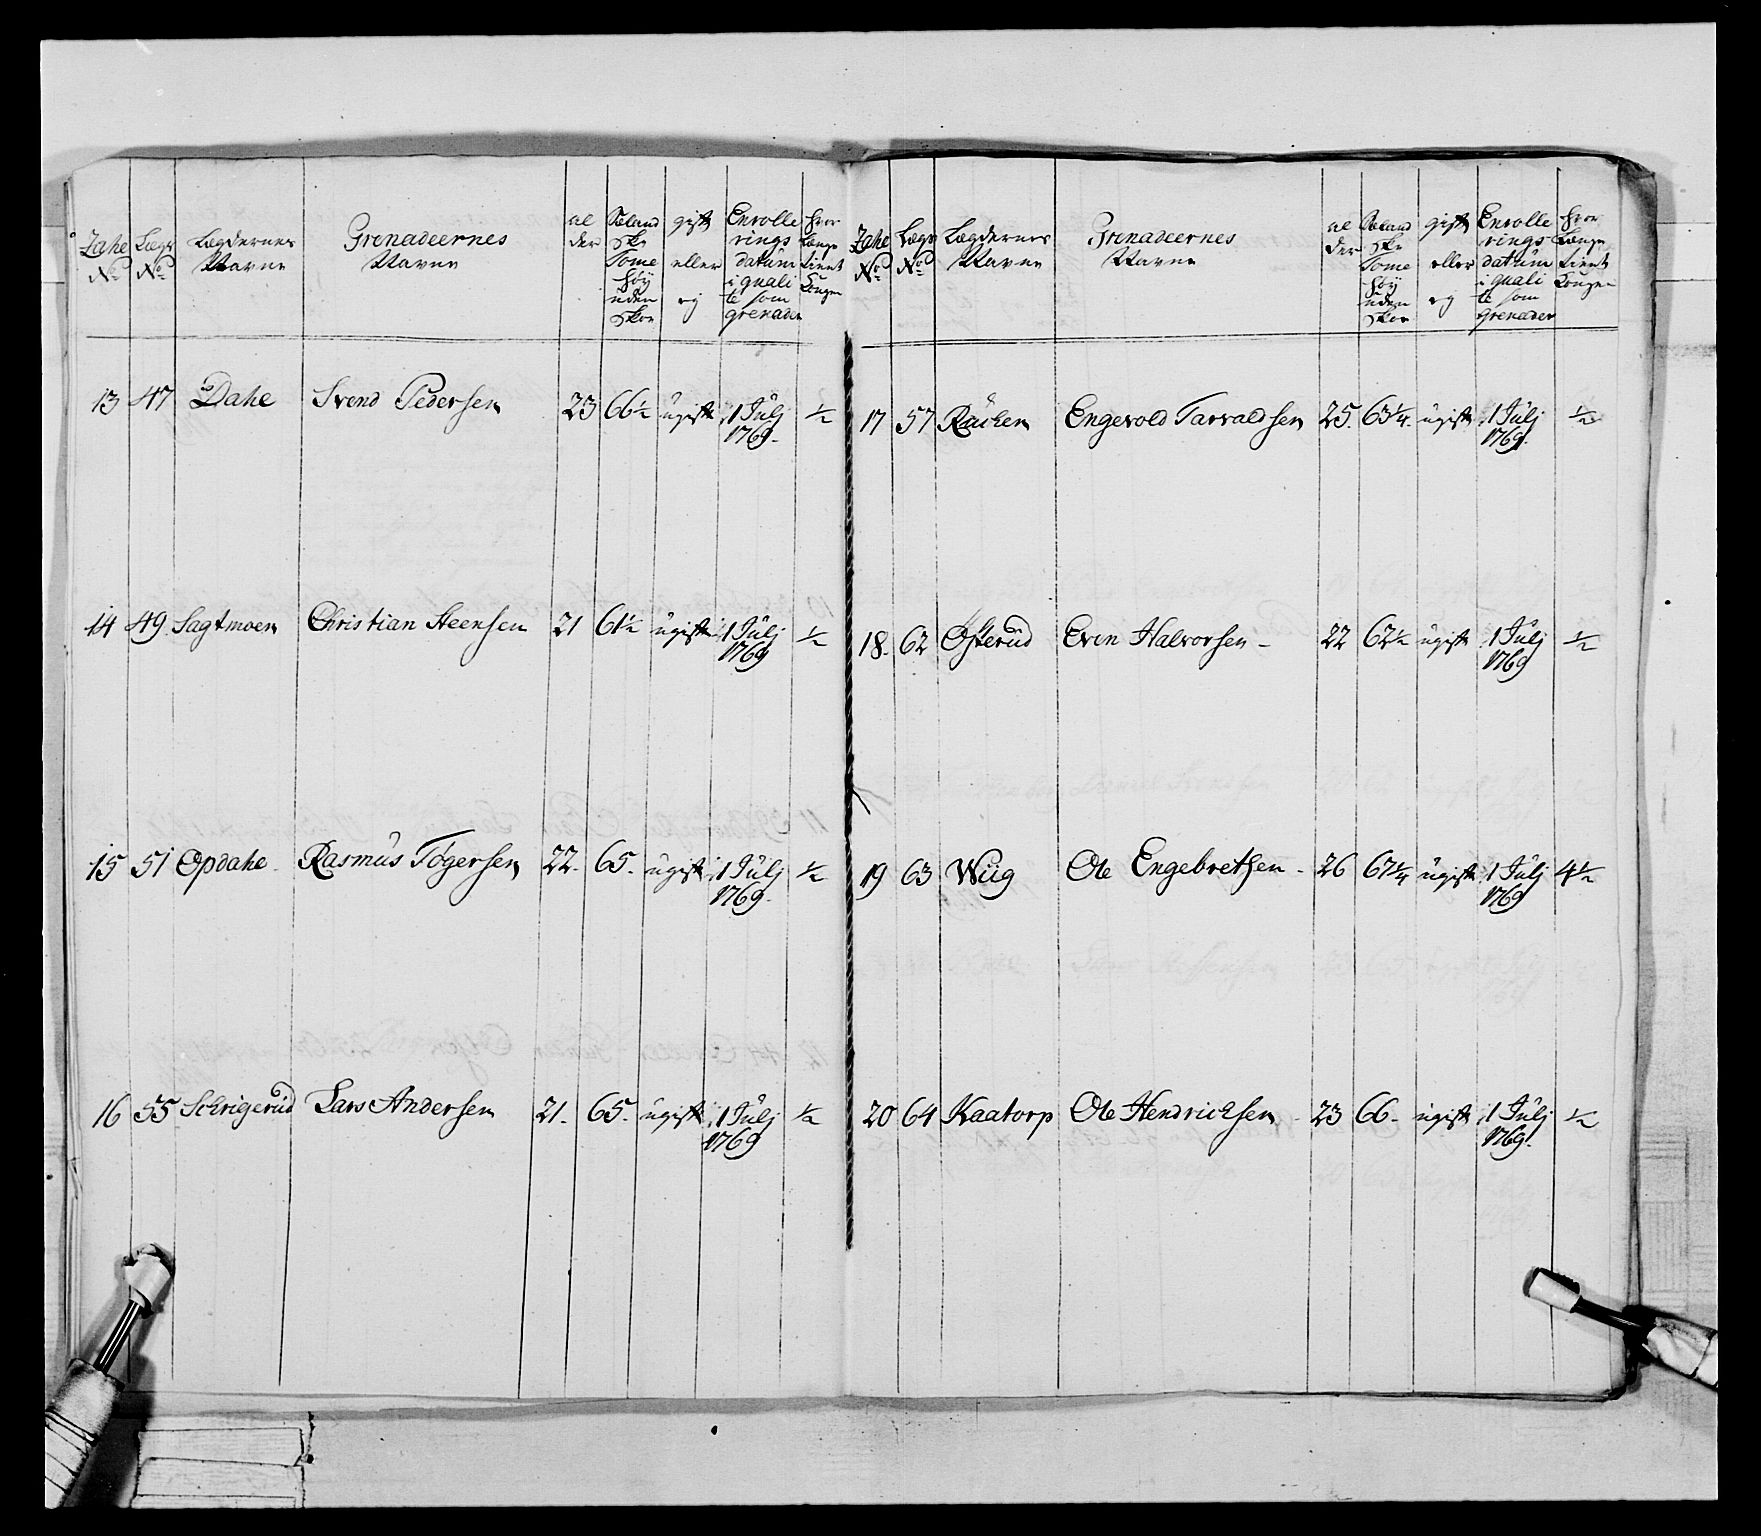 Zahl No | Lægs No | Lægdernes Navne | Grenadeernes Navne | al der | Sæland ske Tome høy uden skoe | gift eller ey | Enrolle rings datum i quali te som grenader | hvor længe tient Kongen
13 | 47 | Dahl | Svend Pedersen | 23 | 66½ | ugift | 1 Julj 1769. | ½
14 | 49 | Sagtmoen | Christian Steensen | 21 | 61½ | ugift | 1 Julj 1769 | ½
15 | 51 | Opdahl | Rasmus Togersen | 22. | 65. | ugift | 1 Julj 1769. | ½
16 | 55 | Schrigerud | Lars Andersen | 21. | 65. | ugift | 1 Julj 1769 | ½
Zahl No | Lægs No | Lægdernes Navne | Grenadeernes Navne | al der | Sæland ske Tome høy uden skoe | gift eller ey | Enrolle rings datum i quali te som grenader | hvor længe tient Kongen
17 | 57 | | Engevold Tarvaldsen | 25. | 63¼. | ugift | 1 Julj 1769. | ½
18. | 62 | Østerud | Even Halvorsen - | 22 | 62½ | ugift | 1 Julj 1769 | ½
19 | 63 | Wiig | Ole Engebretsen - | 26 | 67¼ | ugift | 1 Julj 1769 | 4½
20 | 64 | Kaatorp | Ole Hendrichsen | 23 | 66. | ugift | 1 Julj 1769. | ½